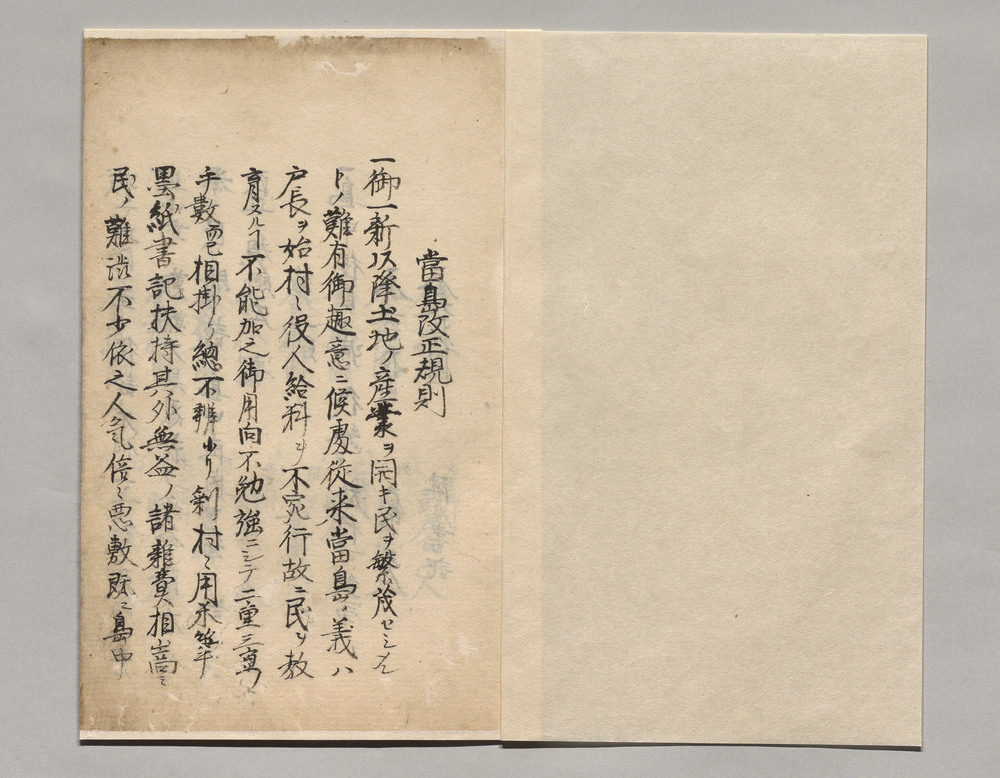 當島改正規則
一御一新以降土地ノ産業ヲ開キ民ヲ繁茂セシメン
トノ難有御趣意ニ候處従来當島ノ義ハ
戸長ヲ始村々役人給料ヲ不宛行故ニ民ヲ教
育スルヿ不能加之御用向不勉強ニシテ二重三重ノ
手數而已相掛リ總不辨ナリ剰村々用求筆
墨紙書記扶持其外無益ノ諸雑費相嵩ミ
民ノ難渋不少依之人氣倍々悪敷既ニ島中